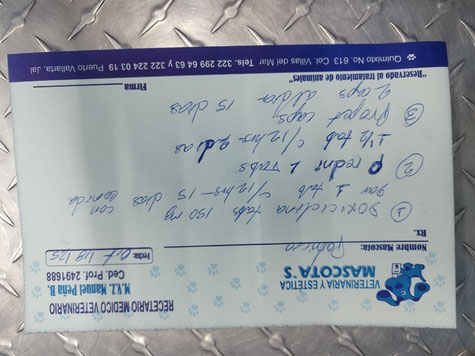 VETERINARIA Y ESTÉTICA
MASCOTA'S
RECETARIO MEDICO VETERINARIO
M.V.Z. Manuel Peña B.
Ced. Prof. 2491688
Fecha: Oct 19 /25
Nombre Mascota:
Rx.
① Doxiciclina tabs 150 mg
1 tab c/12 hrs - 15 dias
con comida
② Predni L tabs
1 ½ tab c/12 hrs - 2 dias
③ Proget caps
2 caps al dia 15 dias
Firma
"Reservado al tratamiento de animales"
Quimixto No. 613 Col. Villas del Mar Tels. 322 299 64 63 y 322 224 03 19 Puerto Vallarta, Jal.